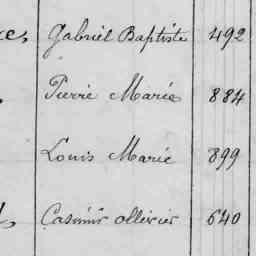 Gabriel Baptiste 492
Pierre Marie 884
Louis Marie 899
Casimir ollivier 640